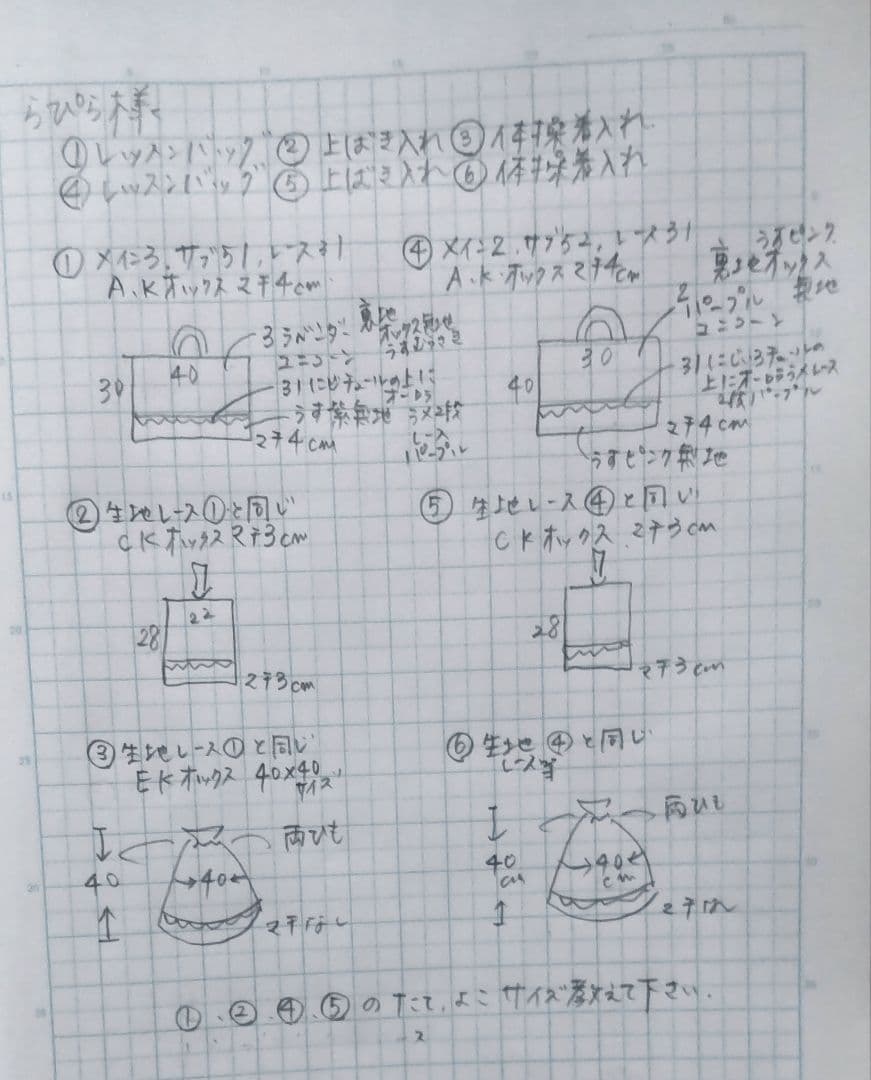 らぴら様
①レッスンバッグ ②上ばき入れ ③体操着入れ
④レッスンバッグ ⑤上ばき入れ ⑥体操着入れ
① メイン3.サブ51.レース31
A.Kオックス マチ4cm
30
40
3ラベンダー
ユニコーン
裏地
オックス無地
うすむらさき
31にじチュールの上に
オーロラ
うす紫無地
ラメ2段
レース
パープル
マチ4cm
④ メイン2.サブ52.レース31
A.K.オックスマチ4cm
うすピンク
裏地オックス
無地
40
30
2
パープル
ユニコーン
31にじいろチュールの
上にオーロララメレース
2段パープル
マチ4cm
うすピンク無地
② 生地レース①と同じ
CKオックスマチ3cm
28
22
マチ3cm
⑤ 生地レース④と同じ
CKオックス マチ3cm
28
マチ3cm
③生地レース①と同じ
EKオックス 40×40
サイズ
両ひも
40
→40←
マチなし
⑥ 生地④と同じ
レース等
両ひも
40
cm
→40←
cm
マチ
①.②.④.⑤のたて,よこサイズ教えて下さい.
2